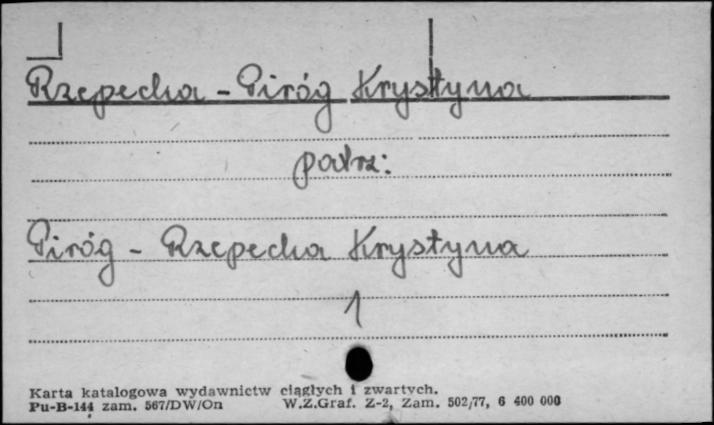 Rzepecka - Piróg Krystyna
patrz:
Piróg - Rzepecka Krystyna
1
Karta katalogowa wydawnictw ciągłych i zwartych.
Pu-B-144 zam. 567/DW/On W.Z.Graf. Z-2, Zam. 502/77, 6 400 000